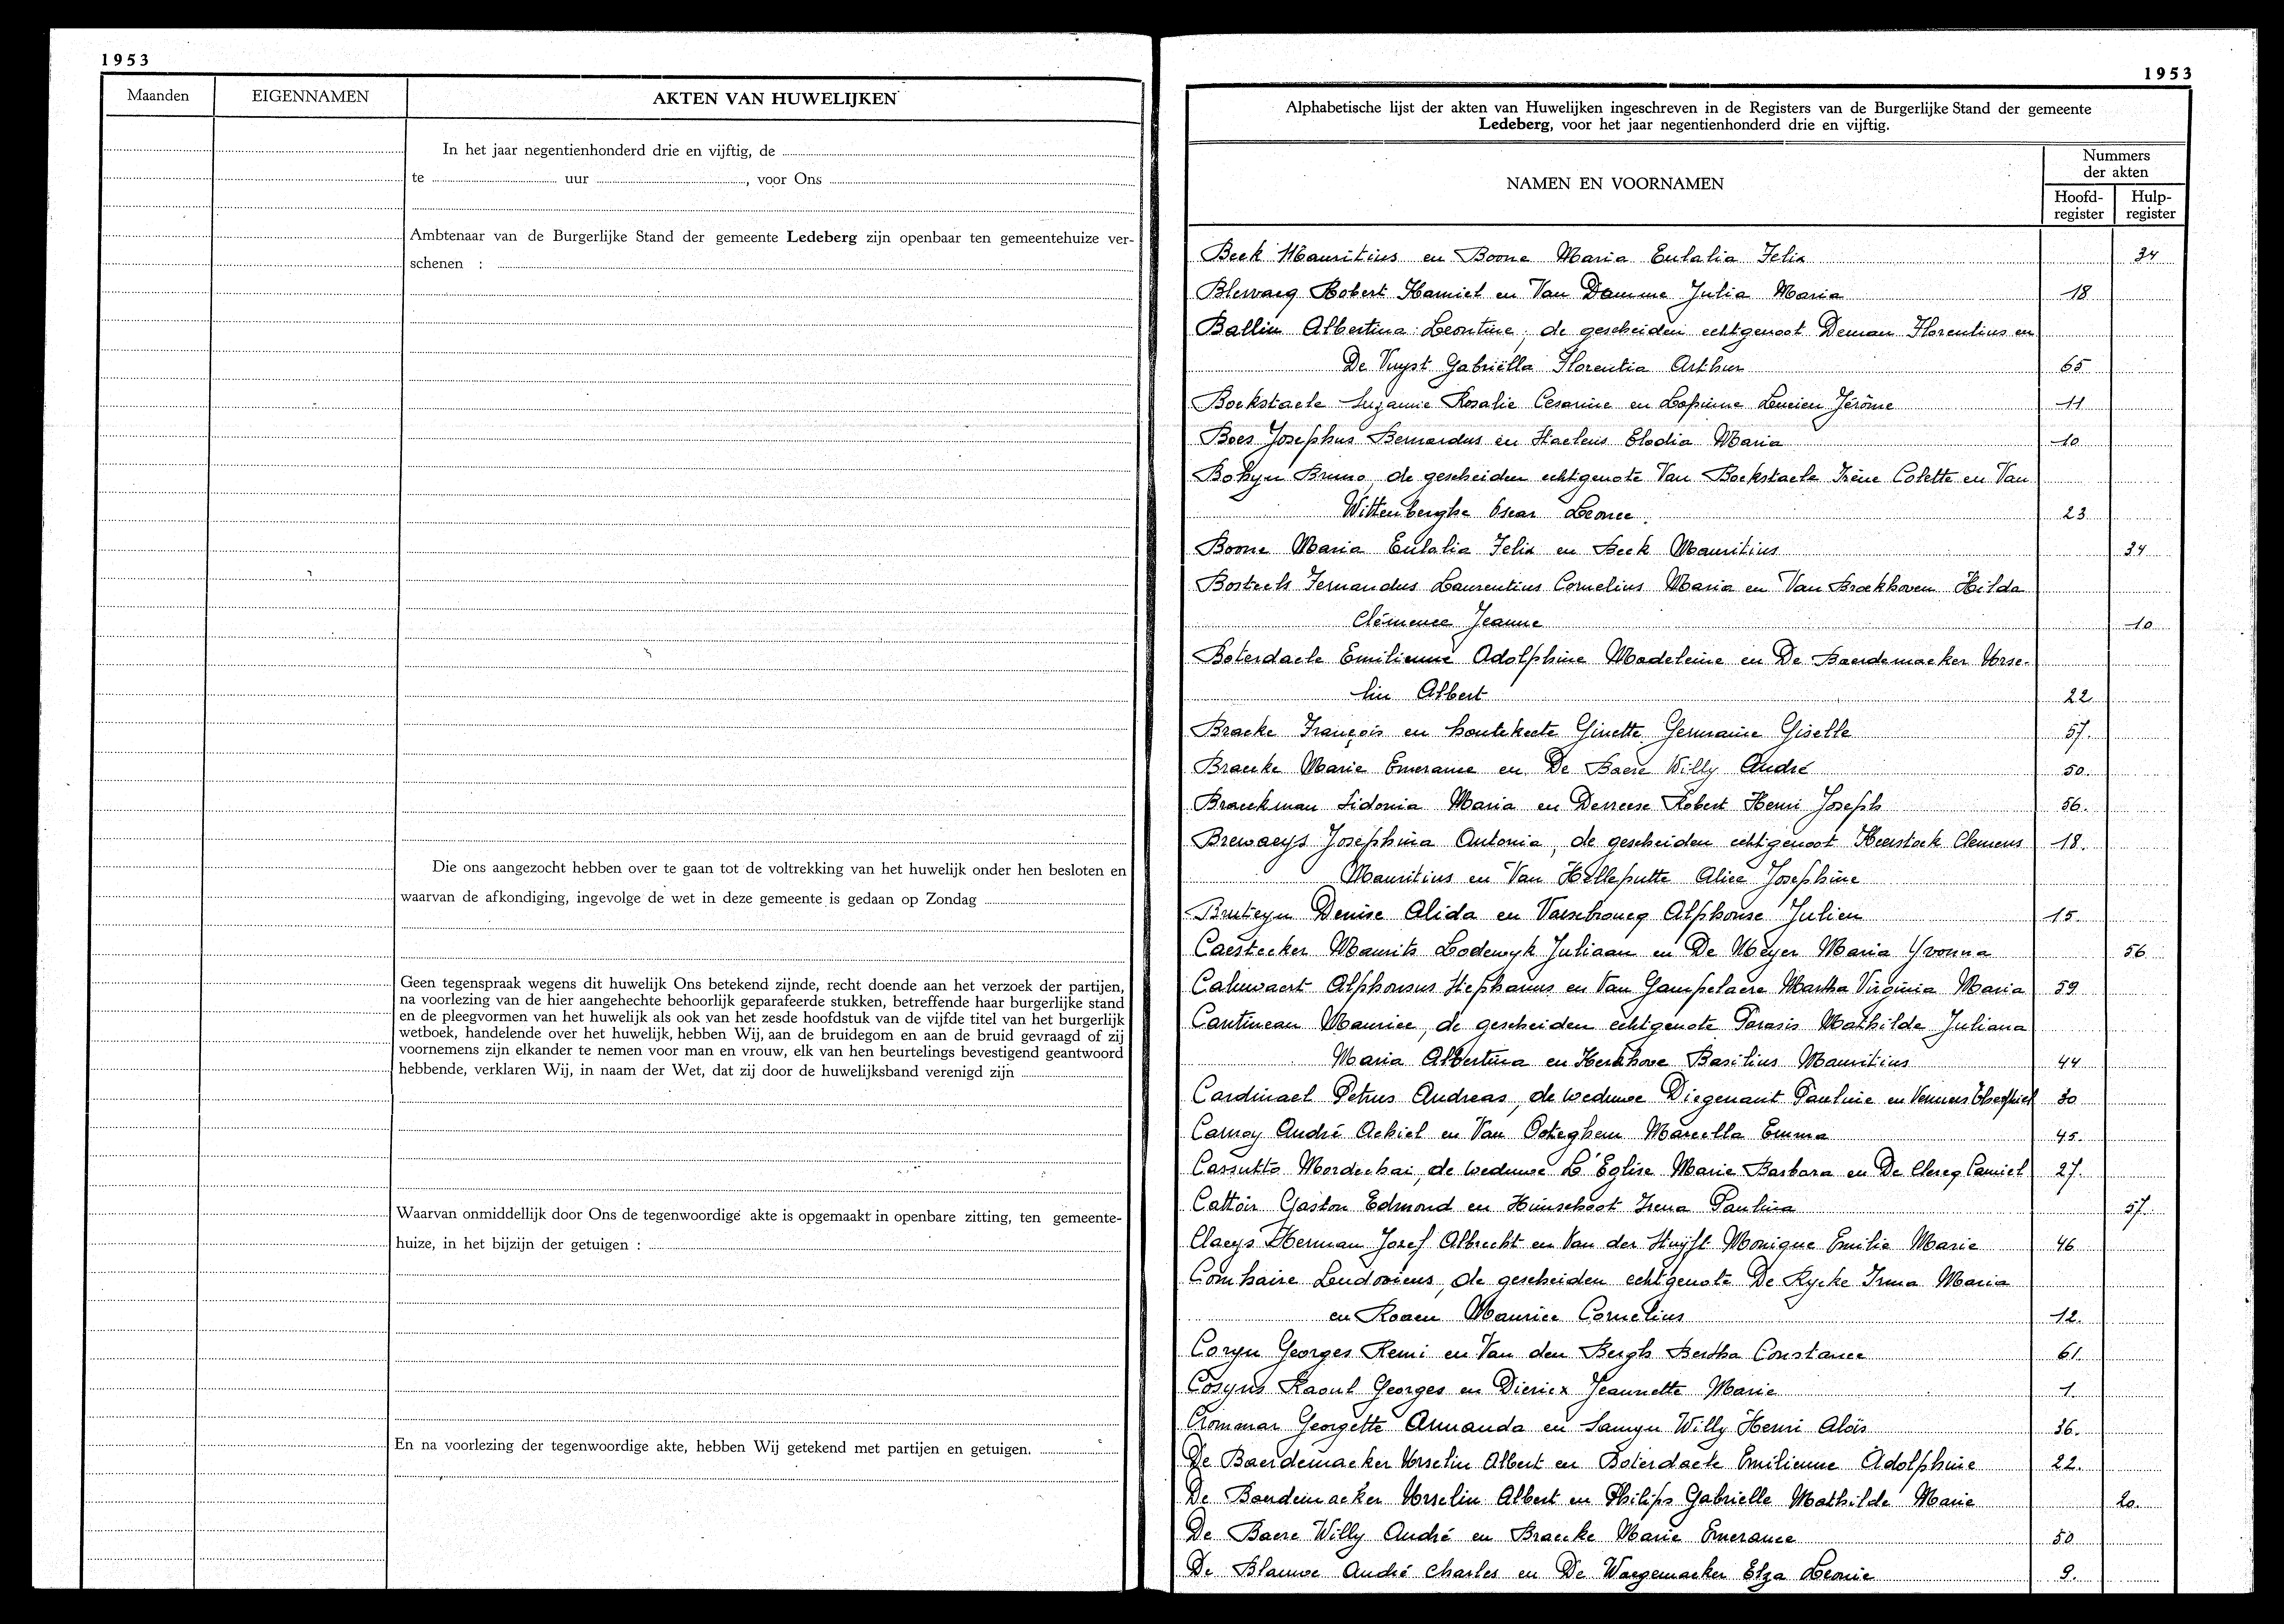 1953
Maanden EIGENNAMEN AKTEN VAN HUWELIJKEN
In het jaar negentienhonderd drie en vijftig, de
te uur , voor Ons
Ambtenaar van de Burgerlijke Stand der gemeente Ledeberg zijn openbaar ten gemeentehuize ver-
schenen :
Die ons aangezocht hebben over te gaan tot de voltrekking van het huwelijk onder hen besloten en
waarvan de afkondiging, ingevolge de wet in deze gemeente is gedaan op Zondag
Geen tegenspraak wegens dit huwelijk Ons betekend zijnde, recht doende aan het verzoek der partijen,
na voorlezing van de hier aangehechte behoorlijk geparafeerde stukken, betreffende haar burgerlijke stand
en de pleegvormen van het huwelijk als ook van het zesde hoofdstuk van de vijfde titel van het burgerlijk
wetboek, handelende over het huwelijk, hebben Wij, aan de bruidegom en aan de bruid gevraagd of zij
voornemens zijn elkander te nemen voor man en vrouw, elk van hen beurtelings bevestigend geantwoord
hebbende, verklaren Wij, in naam der Wet, dat zij door de huwelijksband verenigd zijn
Waarvan onmiddellijk door Ons de tegenwoordige akte is opgemaakt in openbare zitting, ten gemeente-
huize, in het bijzijn der getuigen :
En na voorlezing der tegenwoordige akte, hebben Wij getekend met partijen en getuigen.
1953
Alphabetische lijst der akten van Huwelijken ingeschreven in de Registers van de Burgerlijke Stand der gemeente
Ledeberg, voor het jaar negentienhonderd drie en vijftig.
NAMEN EN VOORNAMEN
Nummers
der akten
Hoofd- Hulp-
register register
Beek Mauritius en Boone Maria Eulalia Felix 34
Blewaeq Robert Kamiel en Van Damme Julia Maria 18
Ballin Albertina Leontine, de gescheiden echtgenoot Deman Florentius en
De Vuyst Gabriëlla Florentia Arthur 65
Boekstaele Suzanne Rosalie Cesarine en Lapinne Lucien Jérôme 11
Boes Josephus Bernardus en Staelens Elodia Maria 10
Bohyn Bruno, de gescheiden echtgenote Van Boekstaele Irène Colette en Van
Wittenberghe Oscar Leonce. 23
Boone Maria Eulalia Felix en Beek Mauritius 34
Bosteels Fernandus Laurentius Cornelius Maria en Van Broekhoven Hilda
Clémence Jeanne 10
Boterdaele Emilienne Adolphine Madeleine en De Baerdemaeker Urse-
lin Albert 22
Bracke François en Houtekeete Ginette Germaine Giselle 57.
Braecke Marie Emerance en De Baere Willy André 50.
Braeckman Sidonia Maria en Derreese Robert Henri Joseph 56.
Brewaeys Josephina Antonia, de gescheiden echtgenoot Heerstock Clemens 18.
Mauritius en Van Helleputte Alice Josephine
Bruteyn Denise Alida en Vaeschoucq Alphonse Julien 15.
Caestecker Maurits Lodewyk Juliaan en De Meyer Maria Yvonna 56
Caluwaert Alphonsus Stephanus en Van Gampelaere Martha Virginia Maria 59
Cantineau Maurice, de gescheiden echtgenote Parasis Mathilde Juliana
Maria Albertina en Kerkhove Basilius Mauritius 44
Cardinael Petrus Andreas, de weduwe Diegenant Pauline en Vennens 30
Carnoy André Achiel en Van Ooteghem Marcella Emma 45.
Cassutto Mordechai, de weduwe L'Eglise Marie Barbara en De Clercq Camiel 27.
Cattoir Gaston Edmond en Huisschoot Irena Paulina 57.
Claeys Herman Jozef Albrecht en Van der Stuyft Monique Emilie Marie 46
Comhaire Ludovicus, de gescheiden echtgenote De Rycke Irma Maria
en Roaen Maurice Cornelius 12.
Coryn Georges Remi en Van den Bergh Bertha Constance 61.
Cosyns Raoul Georges en Diericx Jeannette Marie 1.
Crommar Georgette Armanda en Samyn Willy Henri Aloïs 36.
De Baerdemaeker Urselin Albert en Boterdaele Emilienne Adolphine 22.
De Baerdemaeker Urselin Albert en Philips Gabrielle Mathilde Marie 20.
De Baere Willy André en Braecke Marie Emerance 50
De Blauwe André Charles en De Waegemaeker Elza Leonie 9.